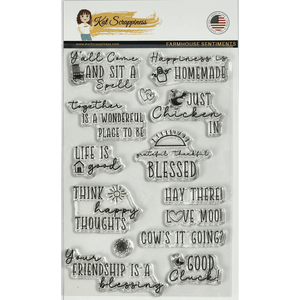 Kat Scrappiness
FARMHOUSE SENTIMENTS
Y'all Come
AND SIT A
Spell
Happiness is
HOMEMADE
together
IS A WONDERFUL
PLACE TO BE
JUST
Chicken
IN
LIFE IS
good
grateful thankful
BLESSED
THINK
happy
THOUGHTS
HAY THERE!
I LOVE MOO!
COW'S IT GOING?
Your
FRIENDSHIP IS A
blessing
GOOD
Cluck!